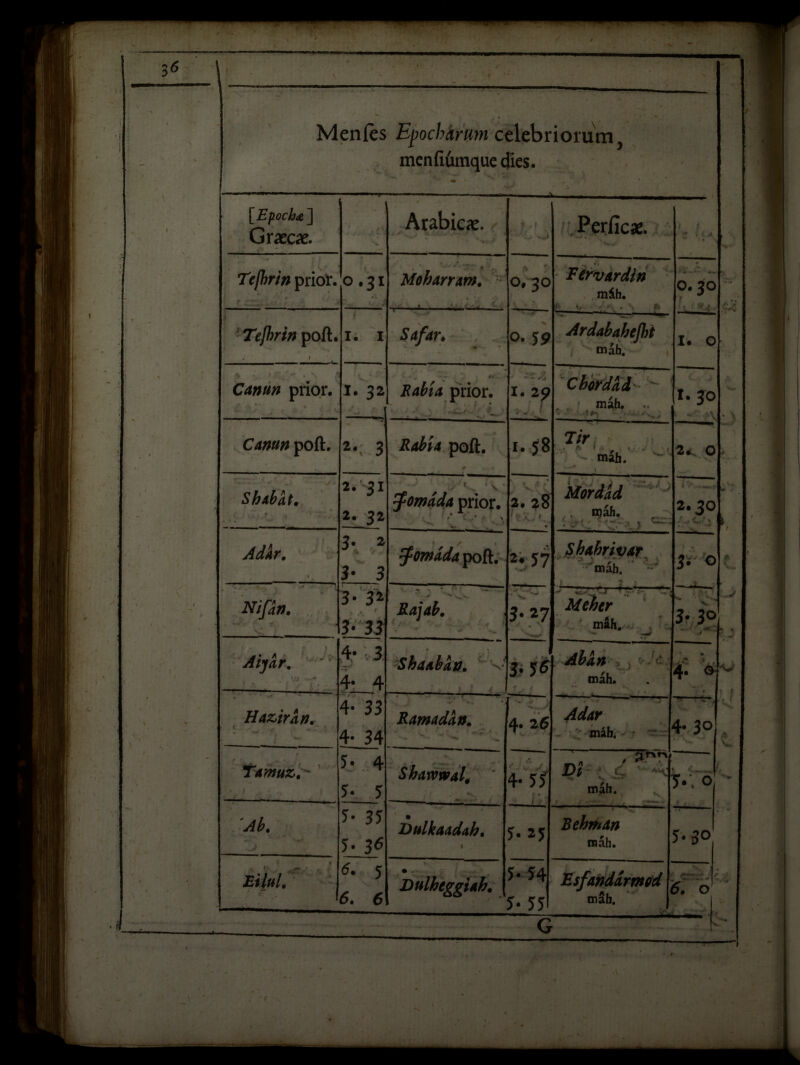 36
Menses Epochârum celebriorum,
mensiûmque dies.
[Epochæ] Græcæ. Arabicæ. Persicæ.
Teshrin prior. 0.31 Moharram. 0.30 Fervardin máh. 0.30
Teshrin post. 1. 1 Safar. 0.59 Ardabahesht máh. 1. 0
Canún prior. 1. 32 Rabía prior. 1. 29 Chordâd máh. 1. 30
Canun post. 2. 3 Rabía post. 1. 58 Tir máh. 2. 0
Shabât. 2. 31 2. 32 Jomáda prior. 2. 28 Mordâd máh. 2. 30
Adâr. 3. 2 3. 3 Jomáda post. 2. 57 Shahrivar máh. 3. 0
Nisân. 3. 32 3. 33 Rajab. 3. 27 Meher mâh. 3. 30
Aiyâr. 4. 3 4. 4 Shaabân. 3. 56 Abân máh. 4. 0
Hazirân. 4. 33 4. 34 Ramadân. 4. 26 Adar máh. 4. 30
Tamuz. 5. 4 5. 5 Shawwal. 4. 55 Dî máh. 5. 0
Ab. 5. 35 5. 36 Dulkaadah. 5. 25 Behman máh. 5. 30
Eilul. 6. 5 6. 6 Dulheggiah. 5. 54 5. 55 Esfandârmod mâh. 6. 0
G